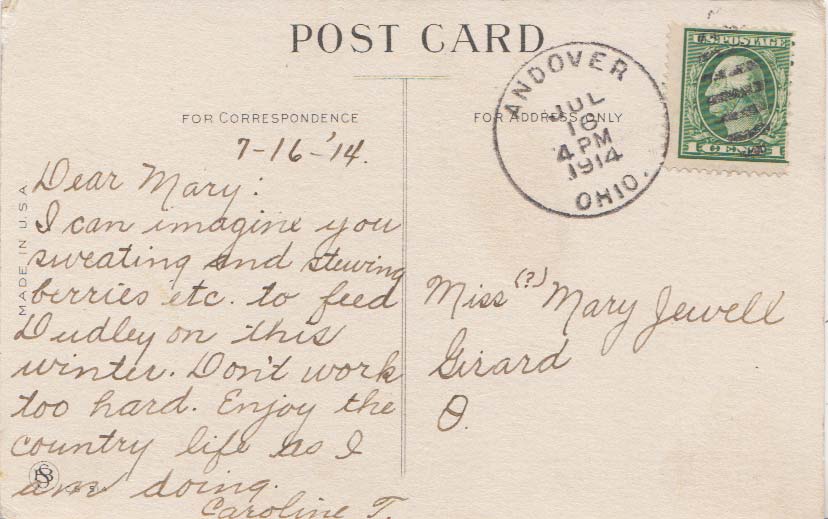 POST CARD
FOR CORRESPONDENCE
FOR ADDRESS ONLY
MADE IN U.S.A
7-16-'14.
Dear Mary:
I can imagine you
sweating and stewing
berries etc. to feed
Dudley on this
winter. Don't work
too hard. Enjoy the
country life as I
am doing.
Caroline T.
ANDOVER
JUL
16
4 PM
1914
OHIO.
U.S. POSTAGE
1 CENT 1
Miss (?) Mary Jewell
Girard
O.